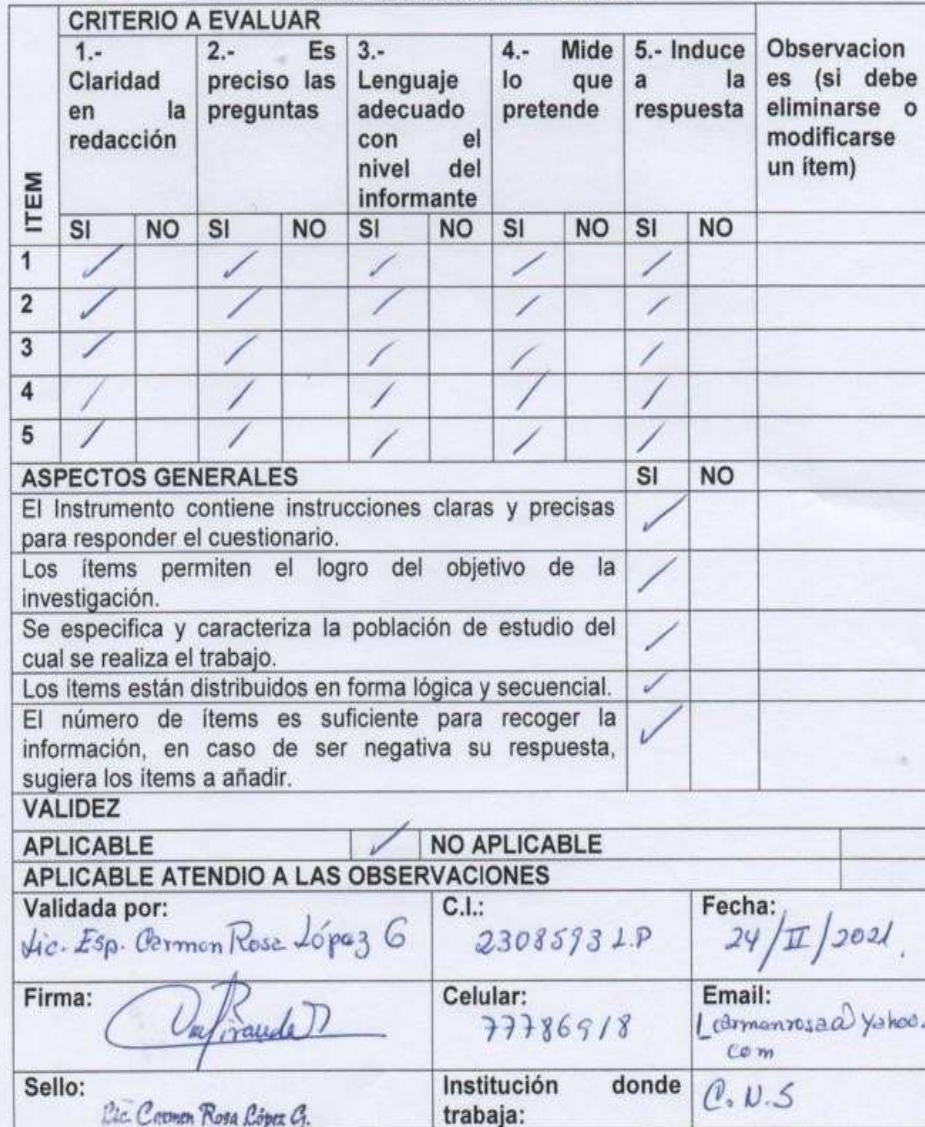 CRITERIO A EVALUAR
ITEM
1.- Claridad en la redacción
2.- Es preciso las preguntas
3.- Lenguaje adecuado con el nivel del informante
4.- Mide lo que pretende
5.- Induce a la respuesta
Observacion es (si debe eliminarse o modificarse un ítem)
SI NO SI NO SI NO SI NO SI NO
1
2
3
4
5
ASPECTOS GENERALES SI NO
El Instrumento contiene instrucciones claras y precisas
para responder el cuestionario.
Los ítems permiten el logro del objetivo de la
investigación.
Se especifica y caracteriza la población de estudio del
cual se realiza el trabajo.
Los ítems están distribuidos en forma lógica y secuencial.
El número de ítems es suficiente para recoger la
información, en caso de ser negativa su respuesta,
sugiera los ítems a añadir.
VALIDEZ
APLICABLE NO APLICABLE
APLICABLE ATENDIO A LAS OBSERVACIONES
Validada por: C.I.: Fecha:
Lic. Esp. Carmen Rosa López G 2308593 L.P 24/II/2021
Firma: Celular: Email:
77786918
yahoo.
com
Sello: Institución donde
trabaja: C.N.S
Lic. Carmen Rosa López G.